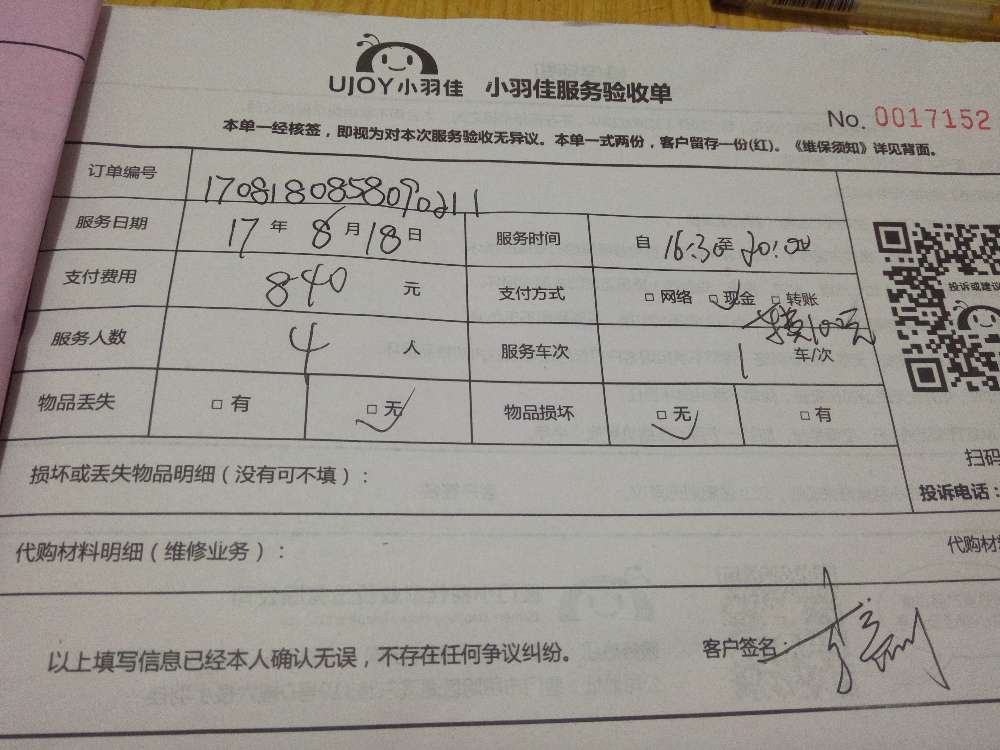 UJOY小羽佳 小羽佳服务验收单
No. 0017152
本单一经核签，即视为对本次服务验收无异议。本单一式两份，客户留存一份(红)。《维保须知》详见背面。
订单编号 1708180858090211
服务日期 17 年 8 月 18 日 服务时间 自 16:30 至 20:00
支付费用 840 元 支付方式 □ 网络 □ 现金 □ 转账
100元
服务人数 4 人 服务车次 1 车/次
物品丢失 □ 有 □ 无 物品损坏 □ 无 □ 有
投诉或建议
扫码
投诉电话：
损坏或丢失物品明细（没有可不填）：
代购材料明细（维修业务）：
代购材
以上填写信息已经本人确认无误，不存在任何争议纠纷。 客户签名：